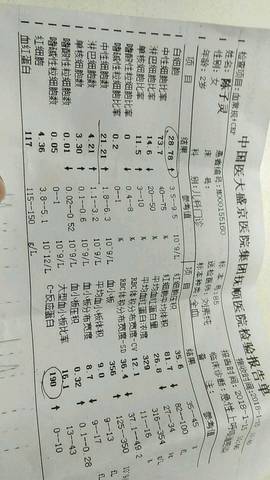 中国医大盛京医院集团抚顺医院检验报告单
检查项目:血常规+CRP
姓名: 患者编号: 标本号:185
性别: 女 床号:
年龄: 2岁 科别: 儿科门诊 标本种类: 全血
项目 结果 参考值 项目 结果 参考值
白细胞 28.78 ↑ 3.5--9.5 10^9/L 红细胞压积 35.6 35--45
中性细胞比率 73.7 40--75 % 81.7 ↓ 82--100 fL
淋巴细胞比率 14.6 ↓ 20--50 % 26.8 ↓ 27--34
单核细胞比率 11.5 ↑ 329
嗜酸性粒细胞比率 0.2 ↓ 0.4--8 % RBC体积分布宽度-CV 12.1 11--16
嗜碱性粒细胞比率 0 0--1 % RBC体积分布宽度-SD 36.4 ↓ 37.1--49.2
中性细胞数 21.21 ↑ 1.8--6.3 10^9/L 血小板 356
淋巴细胞数 4.21 ↑ 1.1--3.2 10^9/L 平均血小板体积 9.0 9--13
单核细胞数 3.30 ↑ 0.1--0.6 10^9/L 血小板分布宽度 8.7 ↓ 9--17
嗜酸性粒细胞数 0.01 ↓ .02--0.52 10^9/L 血小板压积 0.32 ↑ 0.1--0.28
嗜碱性粒细胞数 0.05 10^9/L 大型血小板比率 16.1 13--43
红细胞 4.36 3.8--5.1 10^12/L C-反应蛋白 190 ↑ 0--10
血红蛋白 117 115--150 g/L